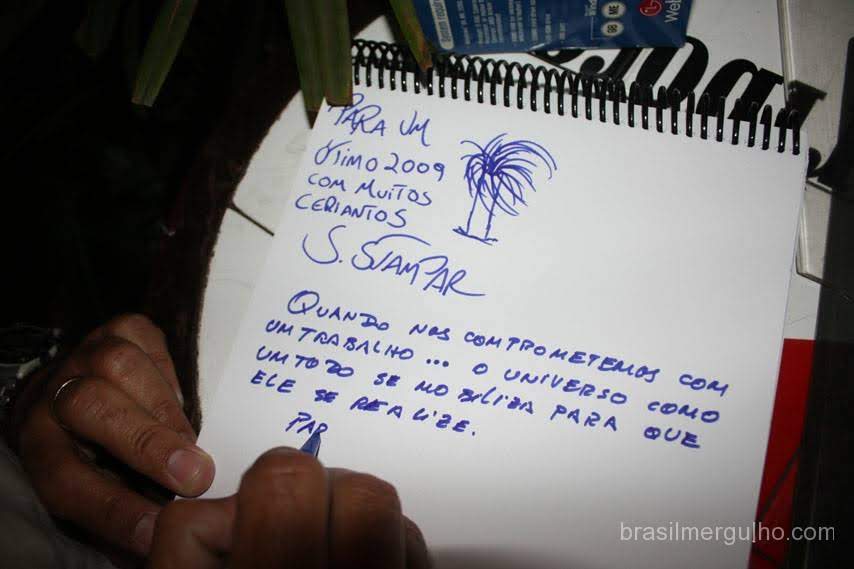 PARA UM
ÓTIMO 2009
COM MUITOS
CERIANTOS
S. STAMPAR
QUANDO NOS COMPROMETEMOS COM
UM TRABALHO... O UNIVERSO COMO
UM TODO SE MOBILIZA PARA QUE
ELE SE REALIZE.
PAR
LG
brasilmergulho.com